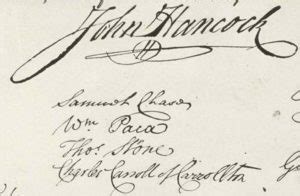 John Hancock
Samuel Chase
Wm Paca
Thos. Stone
Charles Carroll of Carrollton